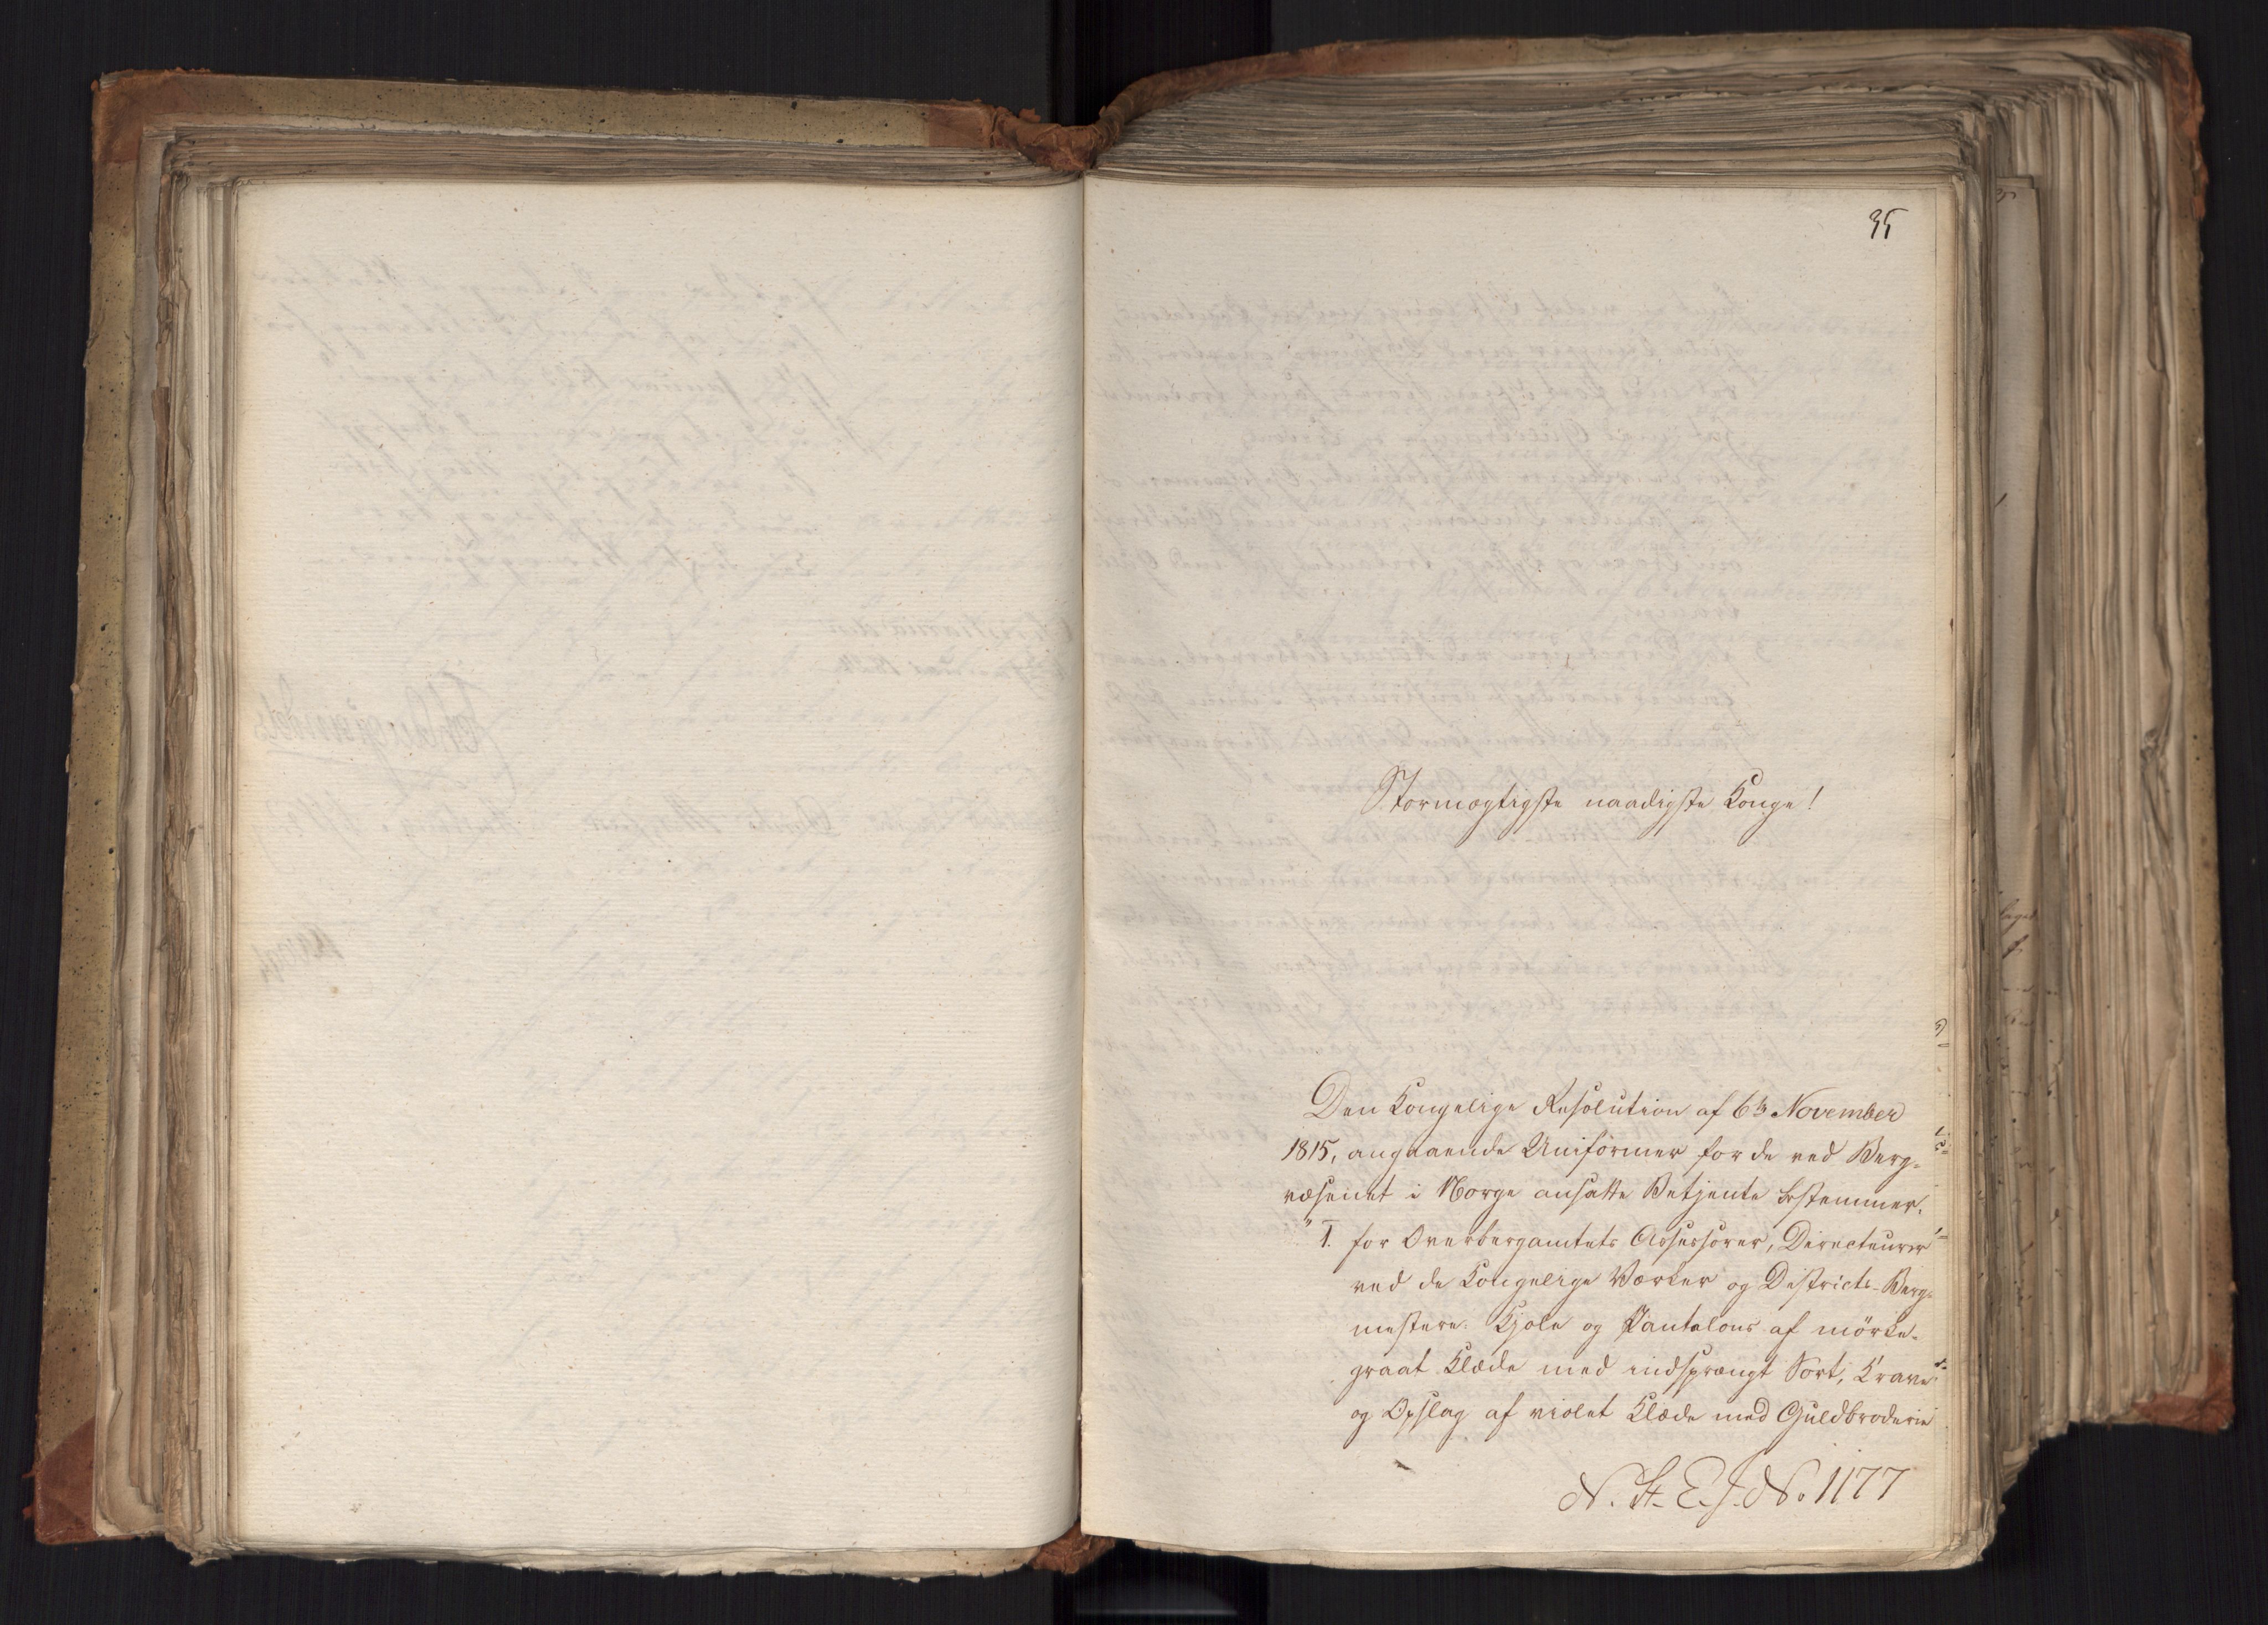 35
Stormægtigste naadigste Konge!
Den Kongelige Resolution af 6te November
1815, angaaende Uniformer for de ved Berg-
væsenet i Norge ansatte Betjente bestemmer,
"1. for Overbergamtets Assessorer, Directeurer
ved de Kongelige Værker og Districts-Berg-
mestere: Kjole og Pantalons af mörke-
graat Klæde med indsprængt Sort, Krave
og Opslag af violet Klæde med Guldbroderie
N. St. E. J. No. 1177